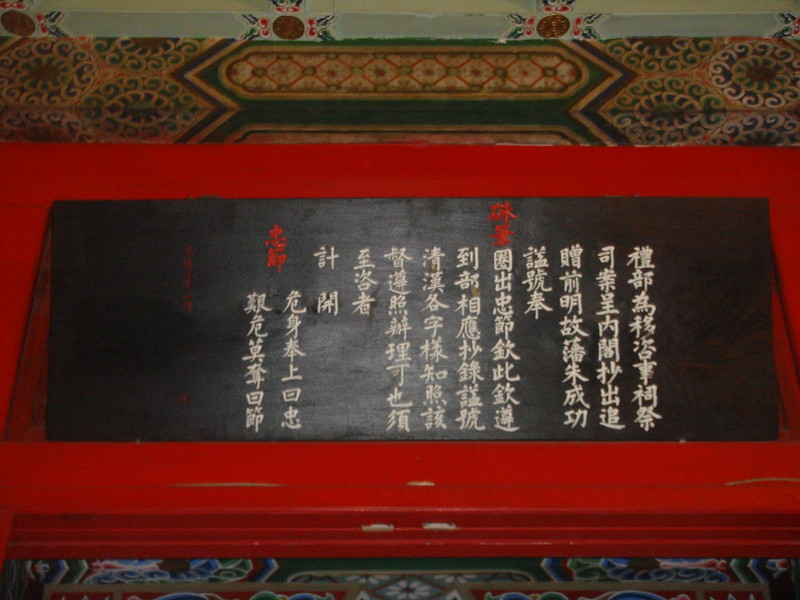 禮部為移咨事祠祭
司案呈內閣抄出追
贈前明故藩朱成功
諡號奉
硃筆圈出忠節欽此欽遵
到部相應抄錄諡號
清漢各字樣知照該
督遵照辦理可也須
至咨者
計開
忠節
危身奉上曰忠
艱危莫奪曰節